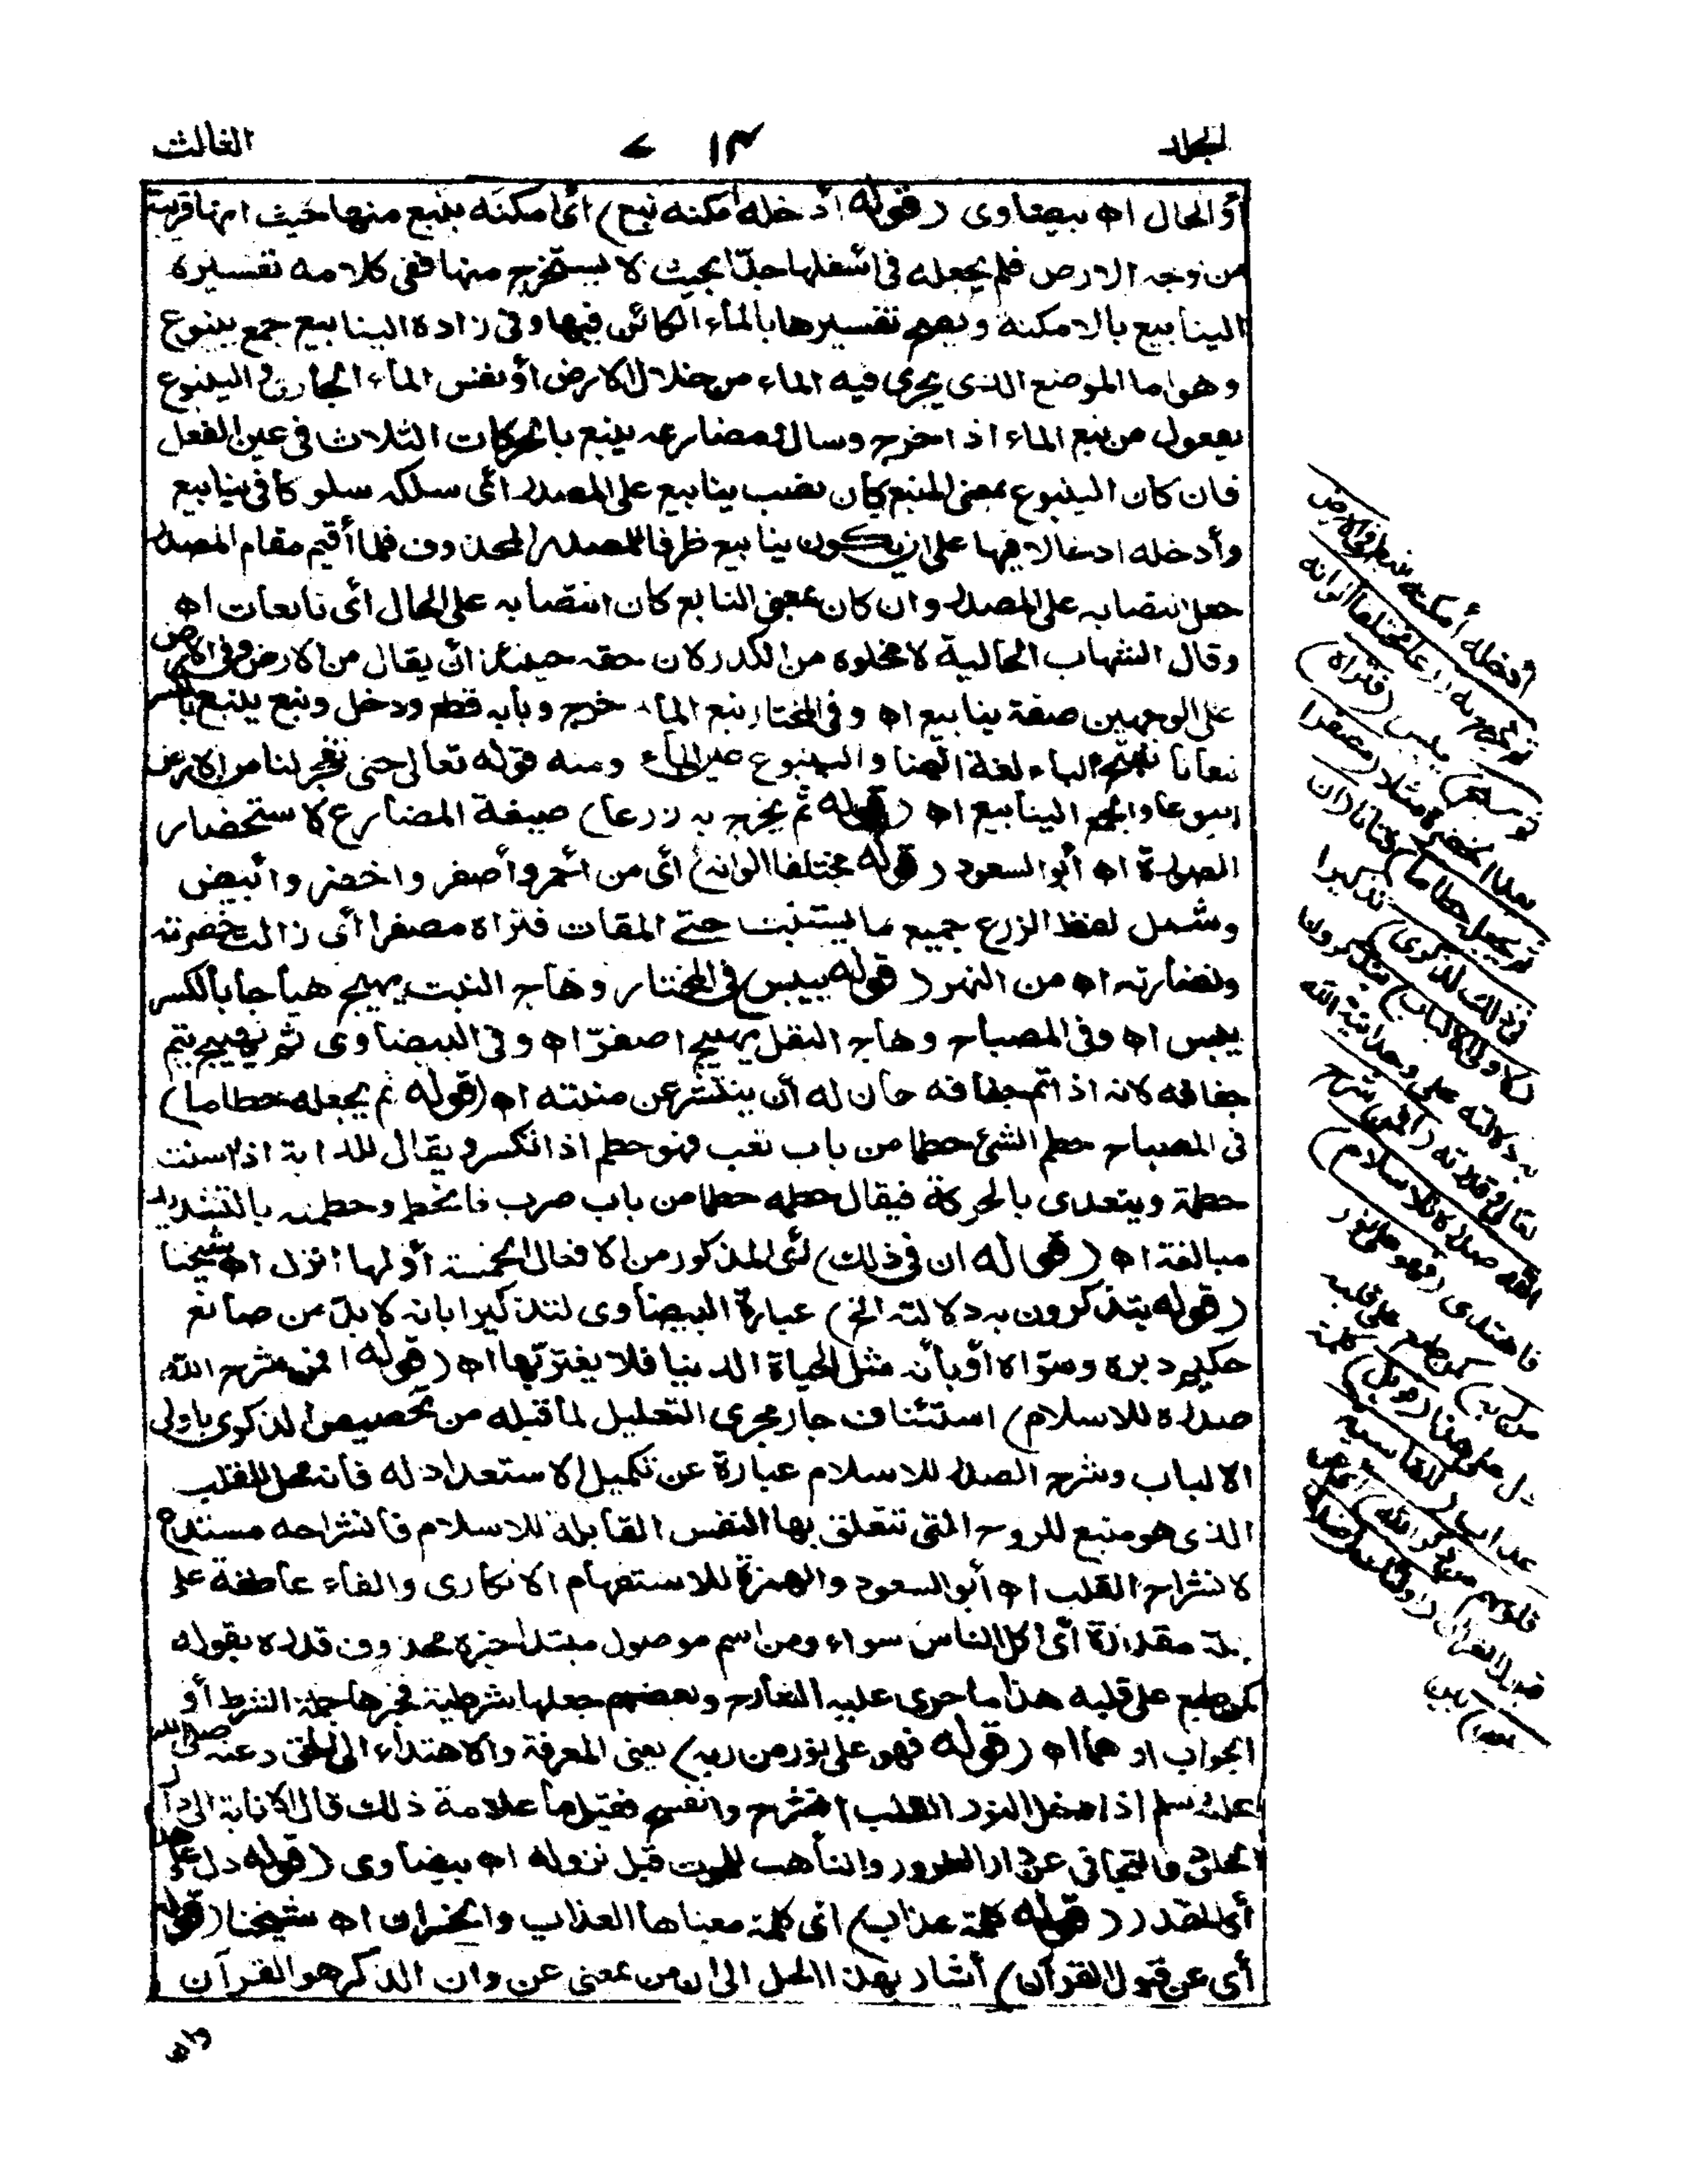 المجلد
الثالث
أو الحال اه بيضاوى (قوله أدخله أمكنة نبع) أى أمكنة ينبع منها حيث انها قريبة
من وجه الارض فلم يجعله فى أسفلها جدّا بحيث لا يستخرج منها ففى كلامه تفسيره
الينابيع بالامكنة وبعضهم تفسيرها بالماء الكائن فيها وفى زاده الينابيع جمع ينبوع
وهو اما الموضع الذى يجرى فيه الماء من خلال الارض أو نفس الماء الجارى والينبوع
يفعول من نبع الماء اذا خرج وسال ومضارعه ينبع بالحركات الثلاث فى عين الفعل
فان كان الينبوع بمعنى المنبع كان نصب ينابيع على المصدر أى سلكه سلوكا فى ينابيع
وأدخله ادخالا فيها على ان يكون ينابيع ظرفا للمصدر المحذوف فلما أقيم مقام المصدر
جعل انتصابه على المصدر وان كان بمعنى النابع كان انتصابه على الحال أى نابعات اه
وقال الشهاب الحالية لا تخلوه من الكدر كان حقه حينئذ ان يقال من الارض وفى الارض
على الوجهين صفة ينابيع اه وفى المختار نبع الماء خرج وبابه قطع ودخل ونبع ينبع بالكسر
نبعانا بفتح الباء لغة ايضا والينبوع عين الماء ومنه قوله تعالى حتى تفجر لنا من الارض
ينبوعا والجمع الينابيع اه (قوله ثم يخرج به زرعا) صيغة المضارع لاستحضار
الصورة اه أبو السعود (قوله مختلفا الوانه) أى من أحمر وأصفر واخضر وأبيض
وشمل لفظ الزرع جميع ما يستنبت حتى المقات فتراه مصفرا أى زالت خضرته
ونضارته اه من النهر (قوله ييبس) فى المختار وهاج النبت يهيج هياجا بالكسر
يبس اه وفى المصباح وهاج البقل يهيج اصفرّ اه وفى البيضاوى ثم يهيج يتم
جفافه لانه اذا تم جفافه حان له أن ينتثر عن منبته اه (قوله ثم يجعله حطاما)
فى المصباح حطم الشئ حطما من باب تعب فهو حطم اذا تكسر ويقال للدابة اذا اسنت
حطمة ويتعدى بالحركة فيقال حطمه حطما من باب ضرب فانحطم وحطمته بالتشديد
مبالغة اه (قوله ان فى ذلك) أى المذكور من الافعال الخمسة أولها انزل اه شيخنا
(قوله يتذكرون به دلالته الخ) عبارة البيضاوى لتذكيرا بانه لا بدّ من صانع
حكيم دبره وسوّاه أو بأنه مثل الحياة الدنيا فلا يغترّ بها اه (قوله افمن شرح الله
صدره للاسلام) استئناف جار مجرى التعليل لما قبله من تخصيص الذكرى باولى
الالباب وشرح الصدر للاسلام عبارة عن تكميل الاستعداد له فانه محل للقلب
الذى هو منبع للروح التى تتعلق بها النفس القابلة للاسلام فانشراحه مستدع
لانشراح القلب اه أبو السعود والهمزة للاستفهام الانكارى والفاء عاطفة على
جملة مقدرة أى أكل الناس سواء ومن اسم موصول مبتدا خبره محذوف قدره بقوله
كمن طبع على قلبه هذا ما جرى عليه الشارح وبعضهم جعلها شرطية فخبرها جملة الشرط أو
الجواب او هما اه (قوله فهو على نور من ربه) يعنى المعرفة والاهتداء الى الحق وعنه صلى الله
عليه وسلم اذا دخل النور القلب انشرح وانفسح فقيل ما علامة ذلك قال الانابة الى دار
الخلود والتجافى عن دار الغرور والتأهب للموت قبل نزوله اه بيضاوى (قوله دل على هذا
أى المقدر (قوله كلمة عذاب) اى كلمة معناها العذاب والخسران اه شيخنا (قوله
أى عن قبول القرآن) أشار بهذا الحل الى ان من بمعنى عن وان الذكر هو القرآن
أدخله أمكنة نبع (فى الارض
ثم يخرج به زرعا مختلفا ألوانه
ثم يهيج) ييبس (فتراه)
بعد الخضرة مثلا (مصفرا
ثم يجعله حطاما) فتاتا (ان
فى ذلك لذكرى) تذكيرا
(لاولى الالباب) يتذكرون
به دلالته على وحدانية الله
تعالى وقدرته (أفمن شرح
الله صدره للاسلام)
فاهتدى (فهو على نور
من ربه) كمن طبع على قلبه
دل على هذا (فويل) كلمة
عذاب (للقاسية
قلوبهم من ذكر الله) أى عن
قبول القرآن (أولئك فى ضلال
مبين) بين